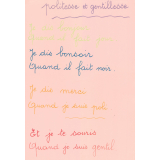 politesse et gentillesse
Je dis bonjour
Quand il fait
Je dis bonsoir
Quand il fait noir
Je dis merci
Quand je suis poli
Et je te souris
Quand je suis gentil